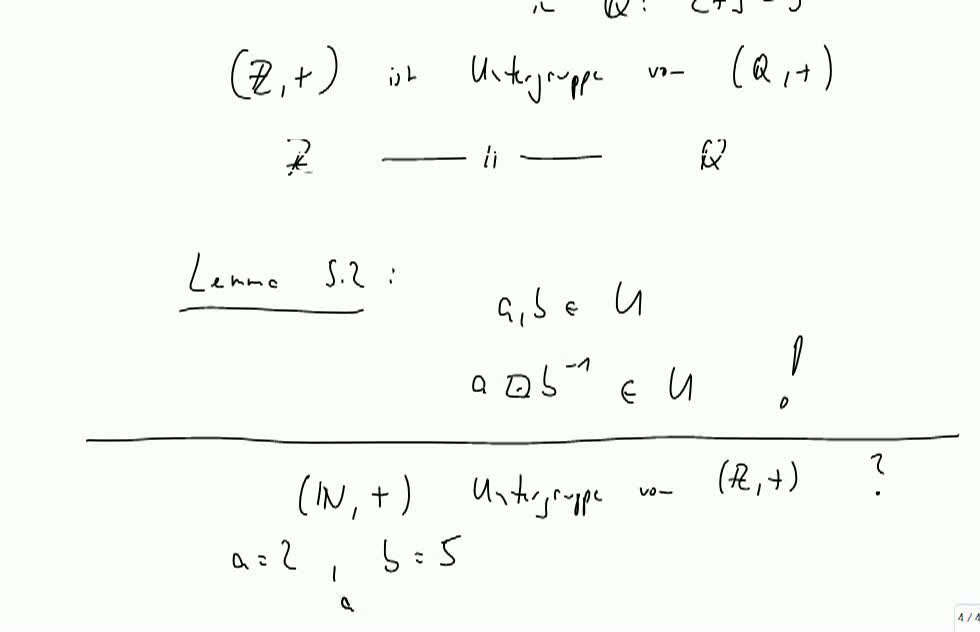 (ℤ, +) ist Untergruppe von (ℚ, +)
ℤ —— " —— ℚ
Lemma 5.2 :
a, b ∈ U
a ⊡ b⁻¹ ∈ U !
(ℕ, +) Untergruppe von (ℤ, +) ?
a = 2 , b = 5
a
4 / 4